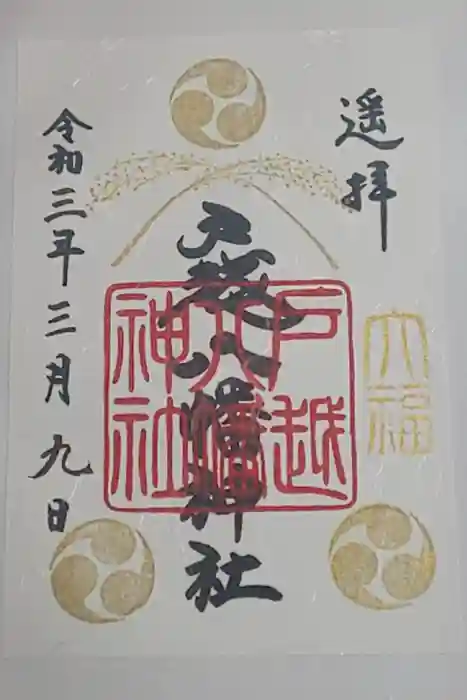 遥拝
大福
戸越八幡神社
戸越八幡神社
令和三年三月九日